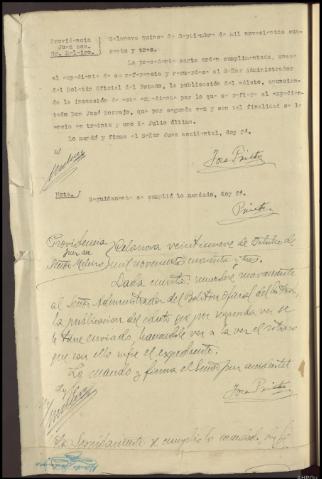 Providencia
Juez acc.
Sr. Meleiro.
Celanova quince de Septiembre de mil novecientos cua-
renta y tres.
La precedente carta orden cumplimentada, unase
al expediente de su referencia y recuerdese al Señor Administrador
del Boletin Oficial del Estado, la publicación del edicto,
de la incoación de este expediente por lo que se refiere al expedien-
tado Don José Borrajo, que por segunda vez y con tal finalidad se le
envio en treinta y uno de Julio último.
Lo mandó y firma el Señor Juez accidental, doy fé.
José Prieto
Nota. /
Seguidamente se cumplió lo mandado, doy fé.
Prieto
Providencia
Juez acc.
Señor Meleiro
Celanova veintinueve de Octubre de
mil novecientos cuarenta y tres.
Dada cuenta: recuerdese nuevamente
al Señor Administrador del Boletin Oficial del Estado,
la publicacion del edicto que por segunda vez se
le tiene enviado, haciendole ver a la vez el retraso
que con ello sufre el expediente.
Lo mandó y firma el Señor Juez accidental
doy fé.
José Prieto
Seguidamente se cumplió lo mandado, doy fé